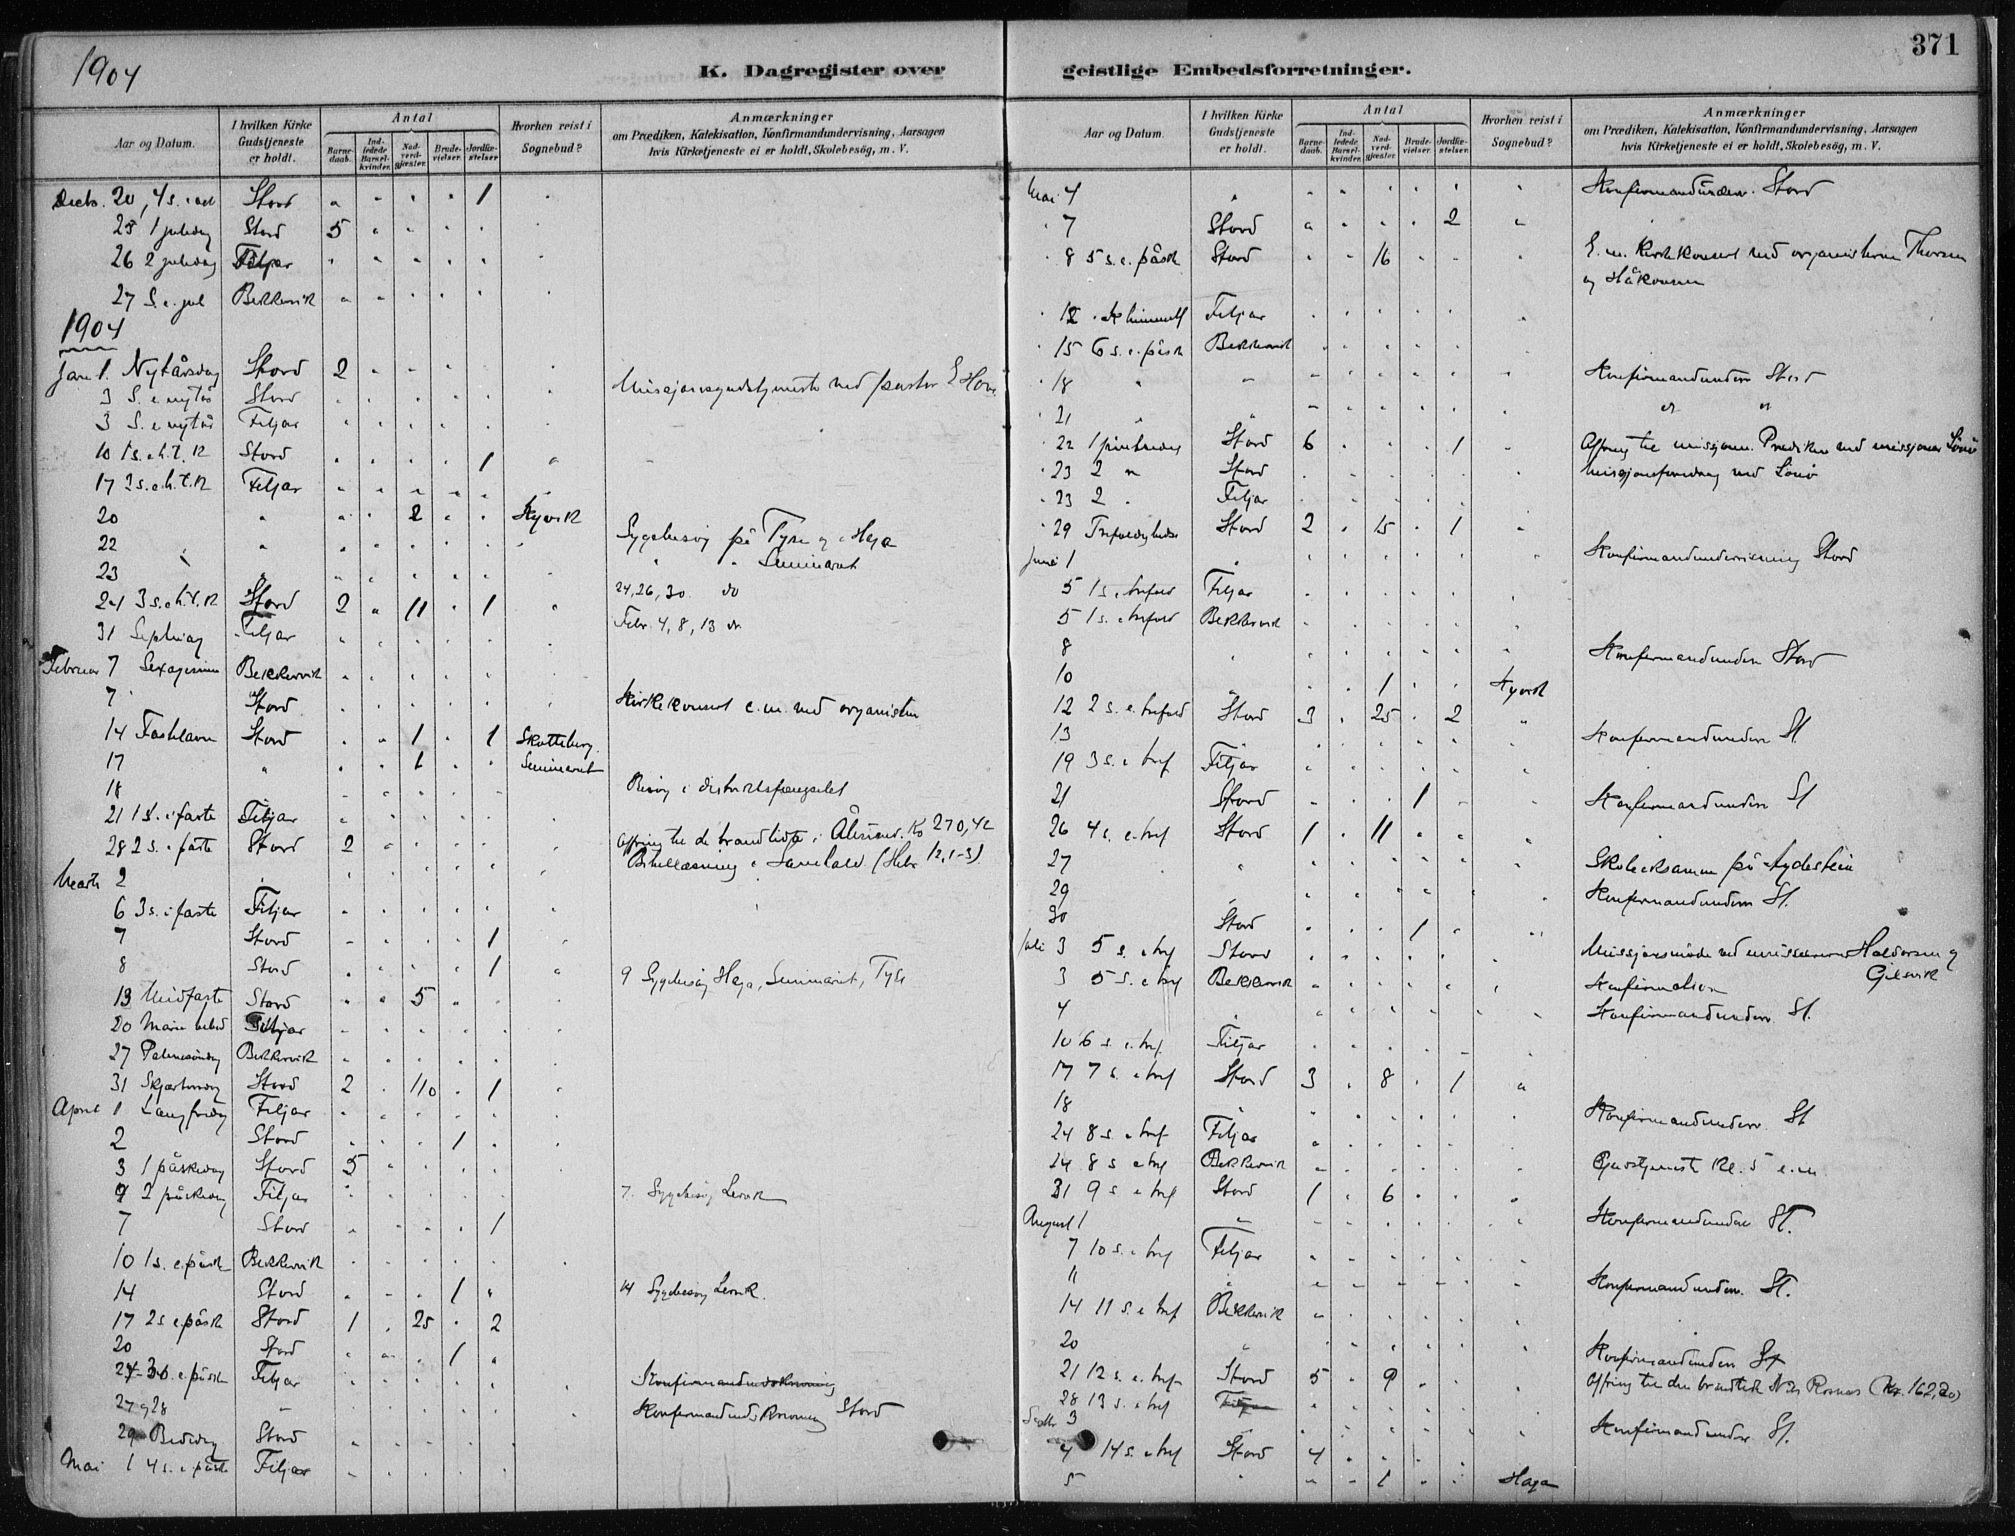 1904
K. Dagregister over
Antal
Aar og Datum.
I hvilken Kirke Gudstjeneste er holdt.
Barne-daab.
Ind-ledede Barsel-kvinder.
Nad-verd-gjester.
Brude-vielser.
Jordfæ-stelser.
Hvorhen reist i Sognebud?
Anmærkninger
om Prædiken, Katekisation, Konfirmandundervisning, Aarsagen
hvis Kirketjeneste ei er holdt, Skolebesøg, m. V.
20, 4 s. i ad Stord " " " " 1 "
25 1 juledag Stord 5 " " " " "
26 2 juledag Fitjar " " " " " "
27 S. e. jul Bekkervik " " " " " "
1904
Jan 1. Nytårsdag Stord 2 " " " "
3 S. e nytår Stord
3 S. e nytår Fitjar
10 1 s. e. h. 3. k Stord " " " " 1 "
17 2 s. e. h. 3. k Fitjar
20 " " " 2 " " Kyvik
22 Sygebesøg på Tyse og i Haga
23 " " Seminaret
24 3 s. e. h. 3. k Stord 2 " 11 " 1 " 24, 26, 30 do
31 Septuag Fitjar Febr. 4, 8, 13 do
Februar 7 Sexagesima Bekkervik
7 Stord Kirkekonsert e. m. ved organisten
14 Fastelavn Stord " " 1 " 1 Skotteberg
17 " " " 1 " " Seminaret
18 Besøg i distriktsfængselet
21 1 s. i faste Fitjar
28 2 s. i faste Stord 2 Offring til de brandlidte i Ålesund. Kr 270,42
Marts 2 Bibellæsning i (Hebr 12, 1-3)
6 3 s. i faste Fitjar
7 Stord " " " " 1 "
8 Stord " " " " 1 " 9 Sygebesøg Haga, Seminaret, Tyse
13 Midfaste Stord " " 5 " "
20 Marie bebud Fitjar
27 Palmesøndag Bekkervik
31 Skjærtorsdag Stord 2 " 110 " 1 "
April 1 Langfredag Fitjar
2 Stord " " " 1 "
3 1 påskedag Stord 5
4 2 påskedag Fitjar 7. Sygebesøg Lervik
7 Stord " " " " 1
10 1 s. e. påsk Bekkervik
14 Stord " " " 1 " 14 Sygebesøg Lervik.
17 2 s. e. påsk Stord 1 " 25 " 2
20 Stord " " " 1 "
24 3 s. e. påsk Fitjar
27 og 28 Stord
29 Bededag Stord
Mai 1 4 s. e påske Fitjar
371
geistlige Embedsforretninger.
Antal
Aar og Datum.
I hvilken Kirke Gudstjeneste er holdt.
Barne-daab.
Ind-ledede Barsel-kvinder.
Nad-verd-gjester.
Brude-vielser.
Jordfæ-stelser.
Hvorhen reist i Sognebud?
Anmærkninger
om Prædiken, Katekisation, Konfirmandundervisning, Aarsagen
hvis Kirketjeneste ei er holdt, Skolebesøg, m. V.
Mai 4 Konfirmandunderv. Stord
7 Stord " " " " 2 "
8 5 s. e. påsk Stord " " 16 " " " E. m. Kirkekonsert ved organisterne Thorsen
og Håkonsen
12 Kr himmelf Fitjar
15 6 s. e. påsk Bekkervik
18 Konfirmandunderv Stord
21 " "
22 1 pinsedag Stord 6 " " " 1 " Offring til misjonen. Prædiken ved misjonær Lønø
23 2 " Stord Misjonsforedrag ved Lønø
23 2 " Fitjar
29 Trefoldighedss Stord 2 " 15 " 1 "
Juni 1 Konfirmandundervisning Stord
5 1 s. e. trefold Fitjar
5 1 s. e. trefold Bekkervik
8 Konfirmandunderv Stord
10 " " 1 " " Kyvik
12 2 s. e. trefold Stord 3 " 25 " 2 "
13 Konfirmandunderv St.
19 3 s. e tref Fitjar
21 Stord " " " 1 " Konfirmandunderv St
26 4 s. e. tref Stord 1 " 11 " " "
27 Skoleeksamen på Aydestein
29 Konfirmandunderv St.
30 Stord " " " 1 "
Juli 3 5 s. e tref Stord Missjonsmøde ved misjonærerne Haldorsen og
3 5 s. e tref Bekkervik Konfirmation Gilsvik
4 Konfirmandunderv. St.
10 6 s. e. tref. Fitjar
17 7 s. e tref Stord 3 " 8 " 1 "
18 Konfirmandunderv. St
24 8 s. e tref Fitjar
24 8 s e tref Bekkervik Gudstjeneste kl. 5 e. m
31 9 s. e tref Stord 1 " 6 " " "
August 1 Konfirmandunder St.
7 10 s. e tref Fitjar
11 Konfirmandunderv. St.
14 11 s. e tref Bekkervik
20 Konfirmandunderv St
21 12 s. e. tref Stord 5 " 9 " " Offring til den brandlidte Nils (Kr. 162,20)
28 13 s. e tref Fitjar
Septbr 3 Konfirmandunder St.
4 14 s. e tref Stord 4
5 " " 1 " " Haga